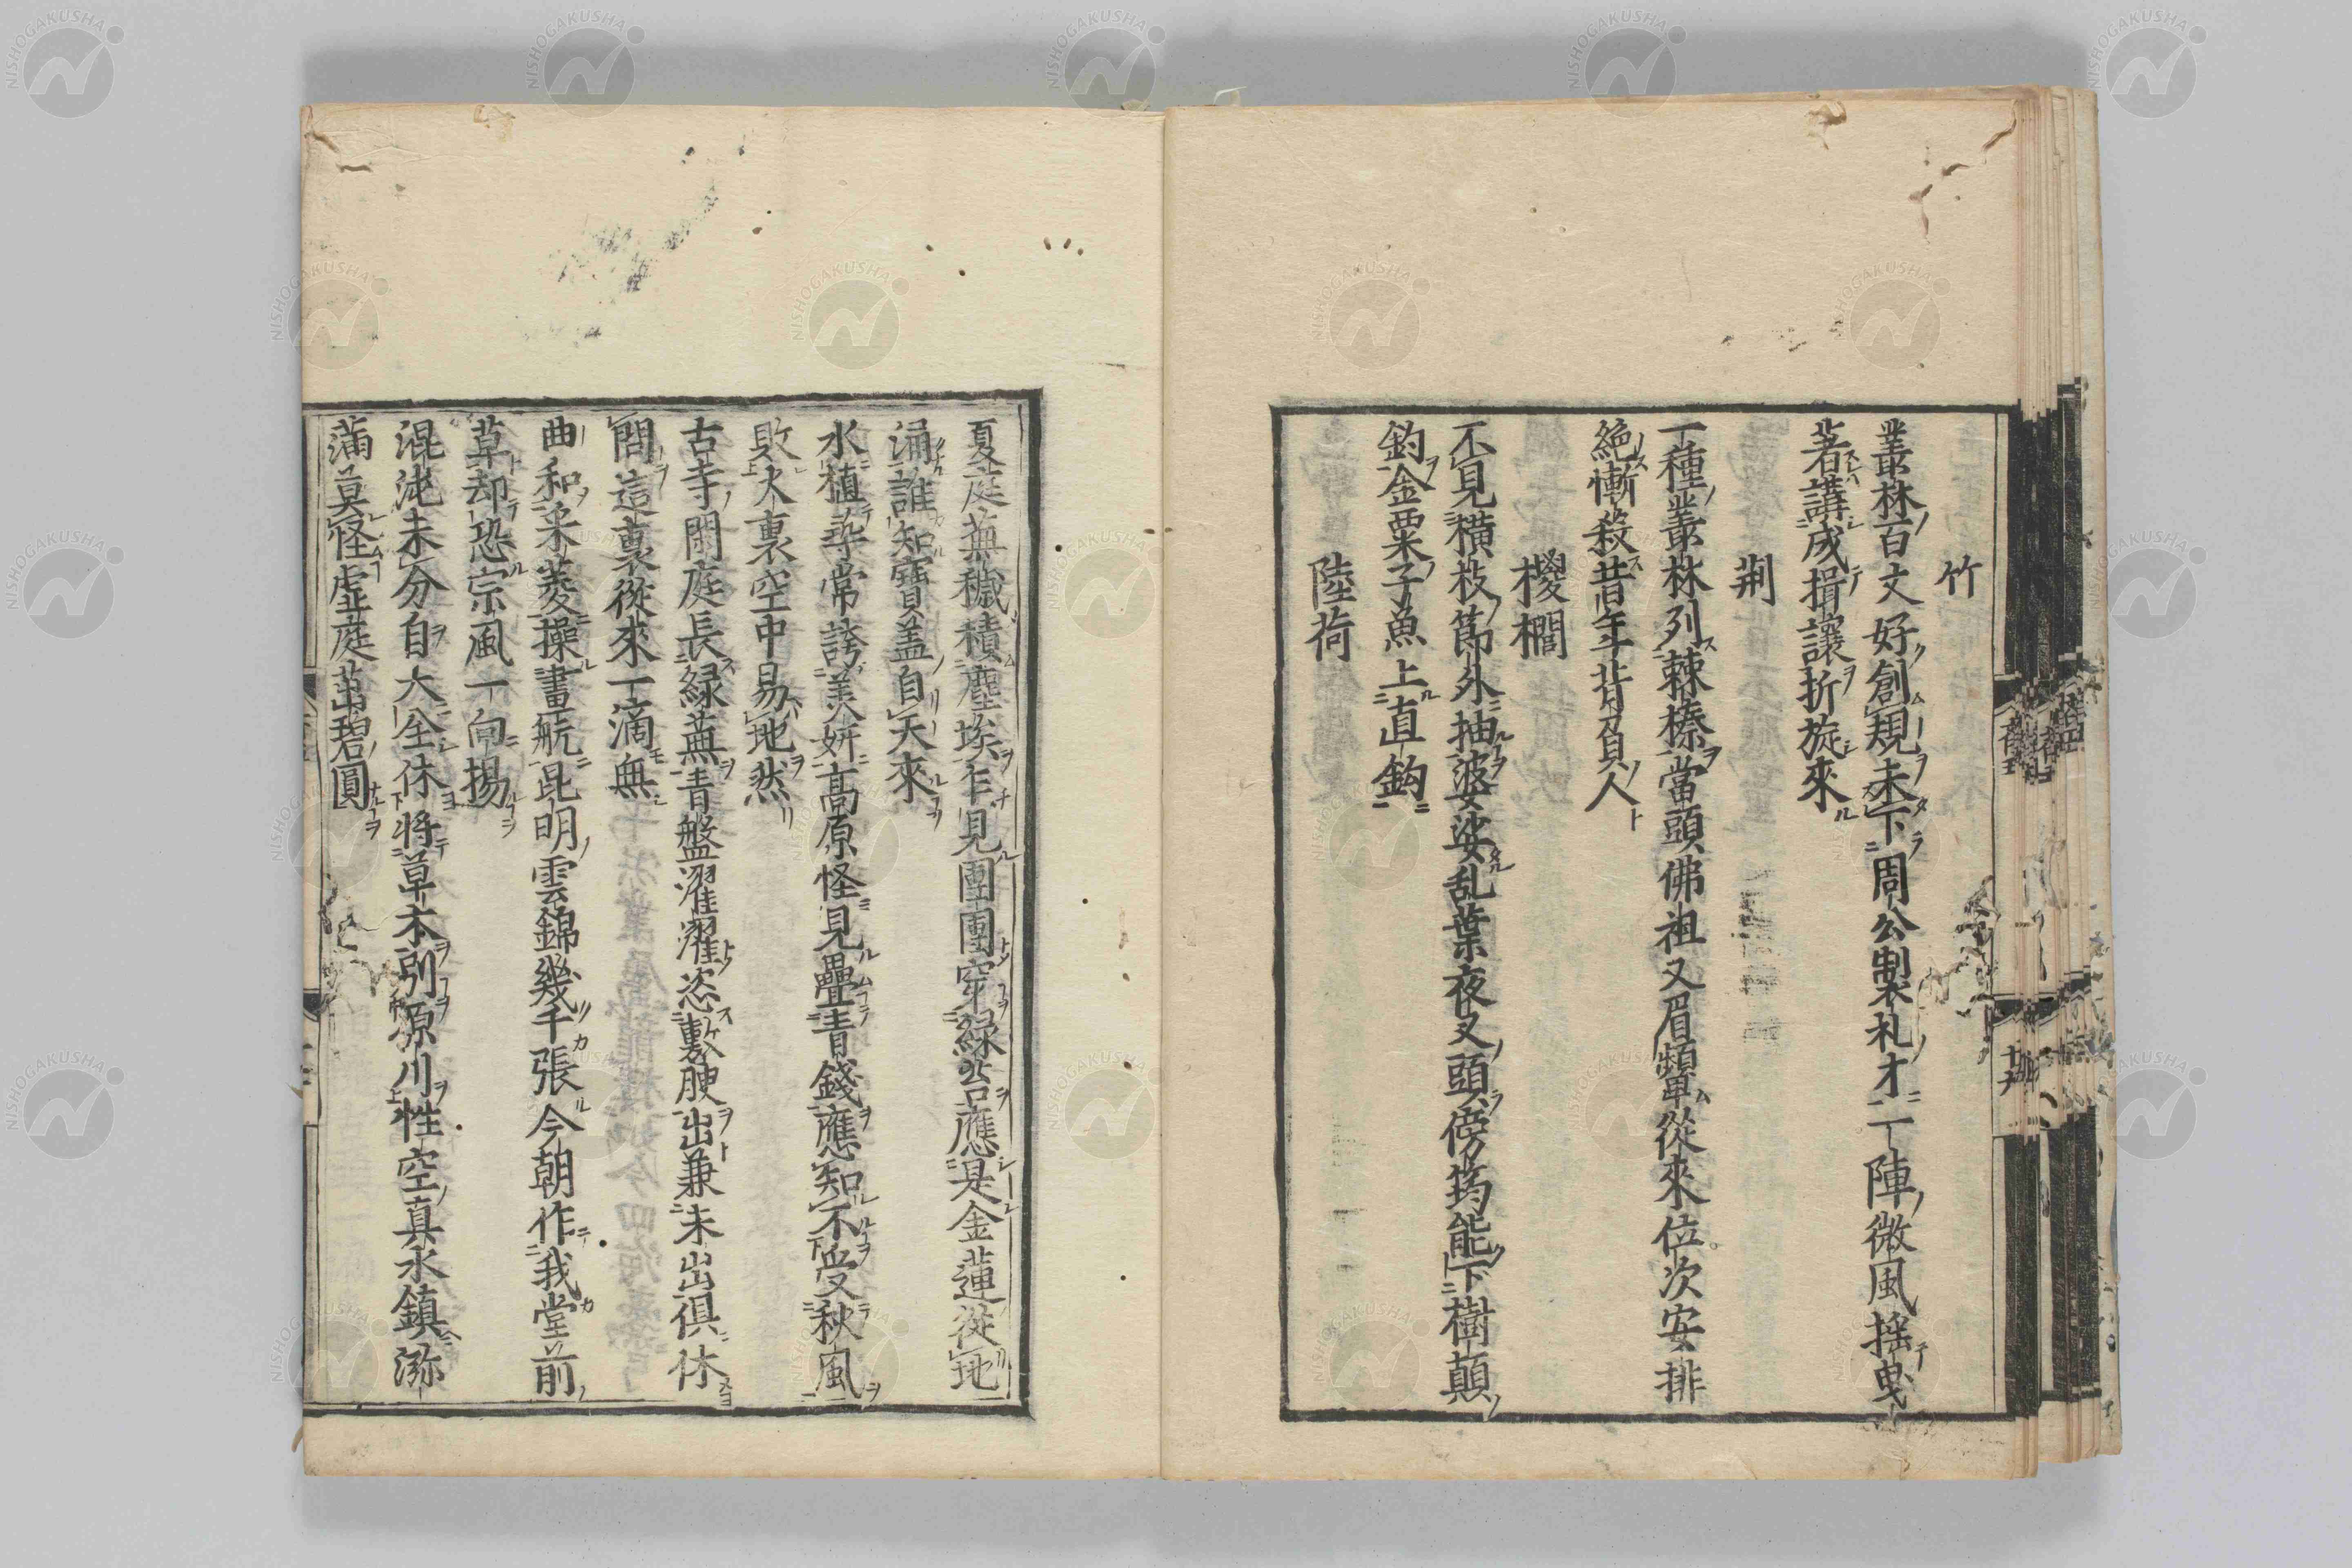 竹
叢林百丈好創規未下周公製礼才一陣微風搖曳
著講成揖讓折旋來
荆
一種叢林列棘榛當頭佛祖又眉顰從來位次安排
絶慚殺昔年背負人
椶櫚
不見横枝節外抽婆娑乱葉夜叉頭傍筠能下樹顛
釣金粟子魚上直鈎
陸荷
夏庭蕪穢積塵埃乍見團團穿緑苔應是金蓮從地
涌誰知寶盖自天來
水植尋常誇美妍高原怪見疊青錢應知不受秋風
敗火裏空中易地然
古寺閑庭長緑蕪青盤濯濯恣敷腴出兼未出倶休
問這裏從來一滴無
曲和采菱操畫航昆明雲錦幾千張今朝作我堂前
草却恐宗風一向揚
混沌未分自大全休將草本引原川性空真水鎮瀰
滿莫怪虚庭茁碧圓